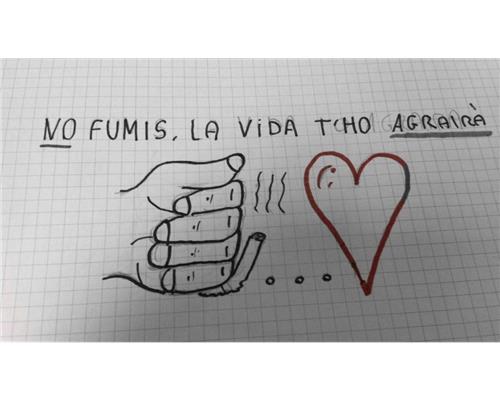 NO FUMIS, LA ViDA T'HO AGRAIRÀ